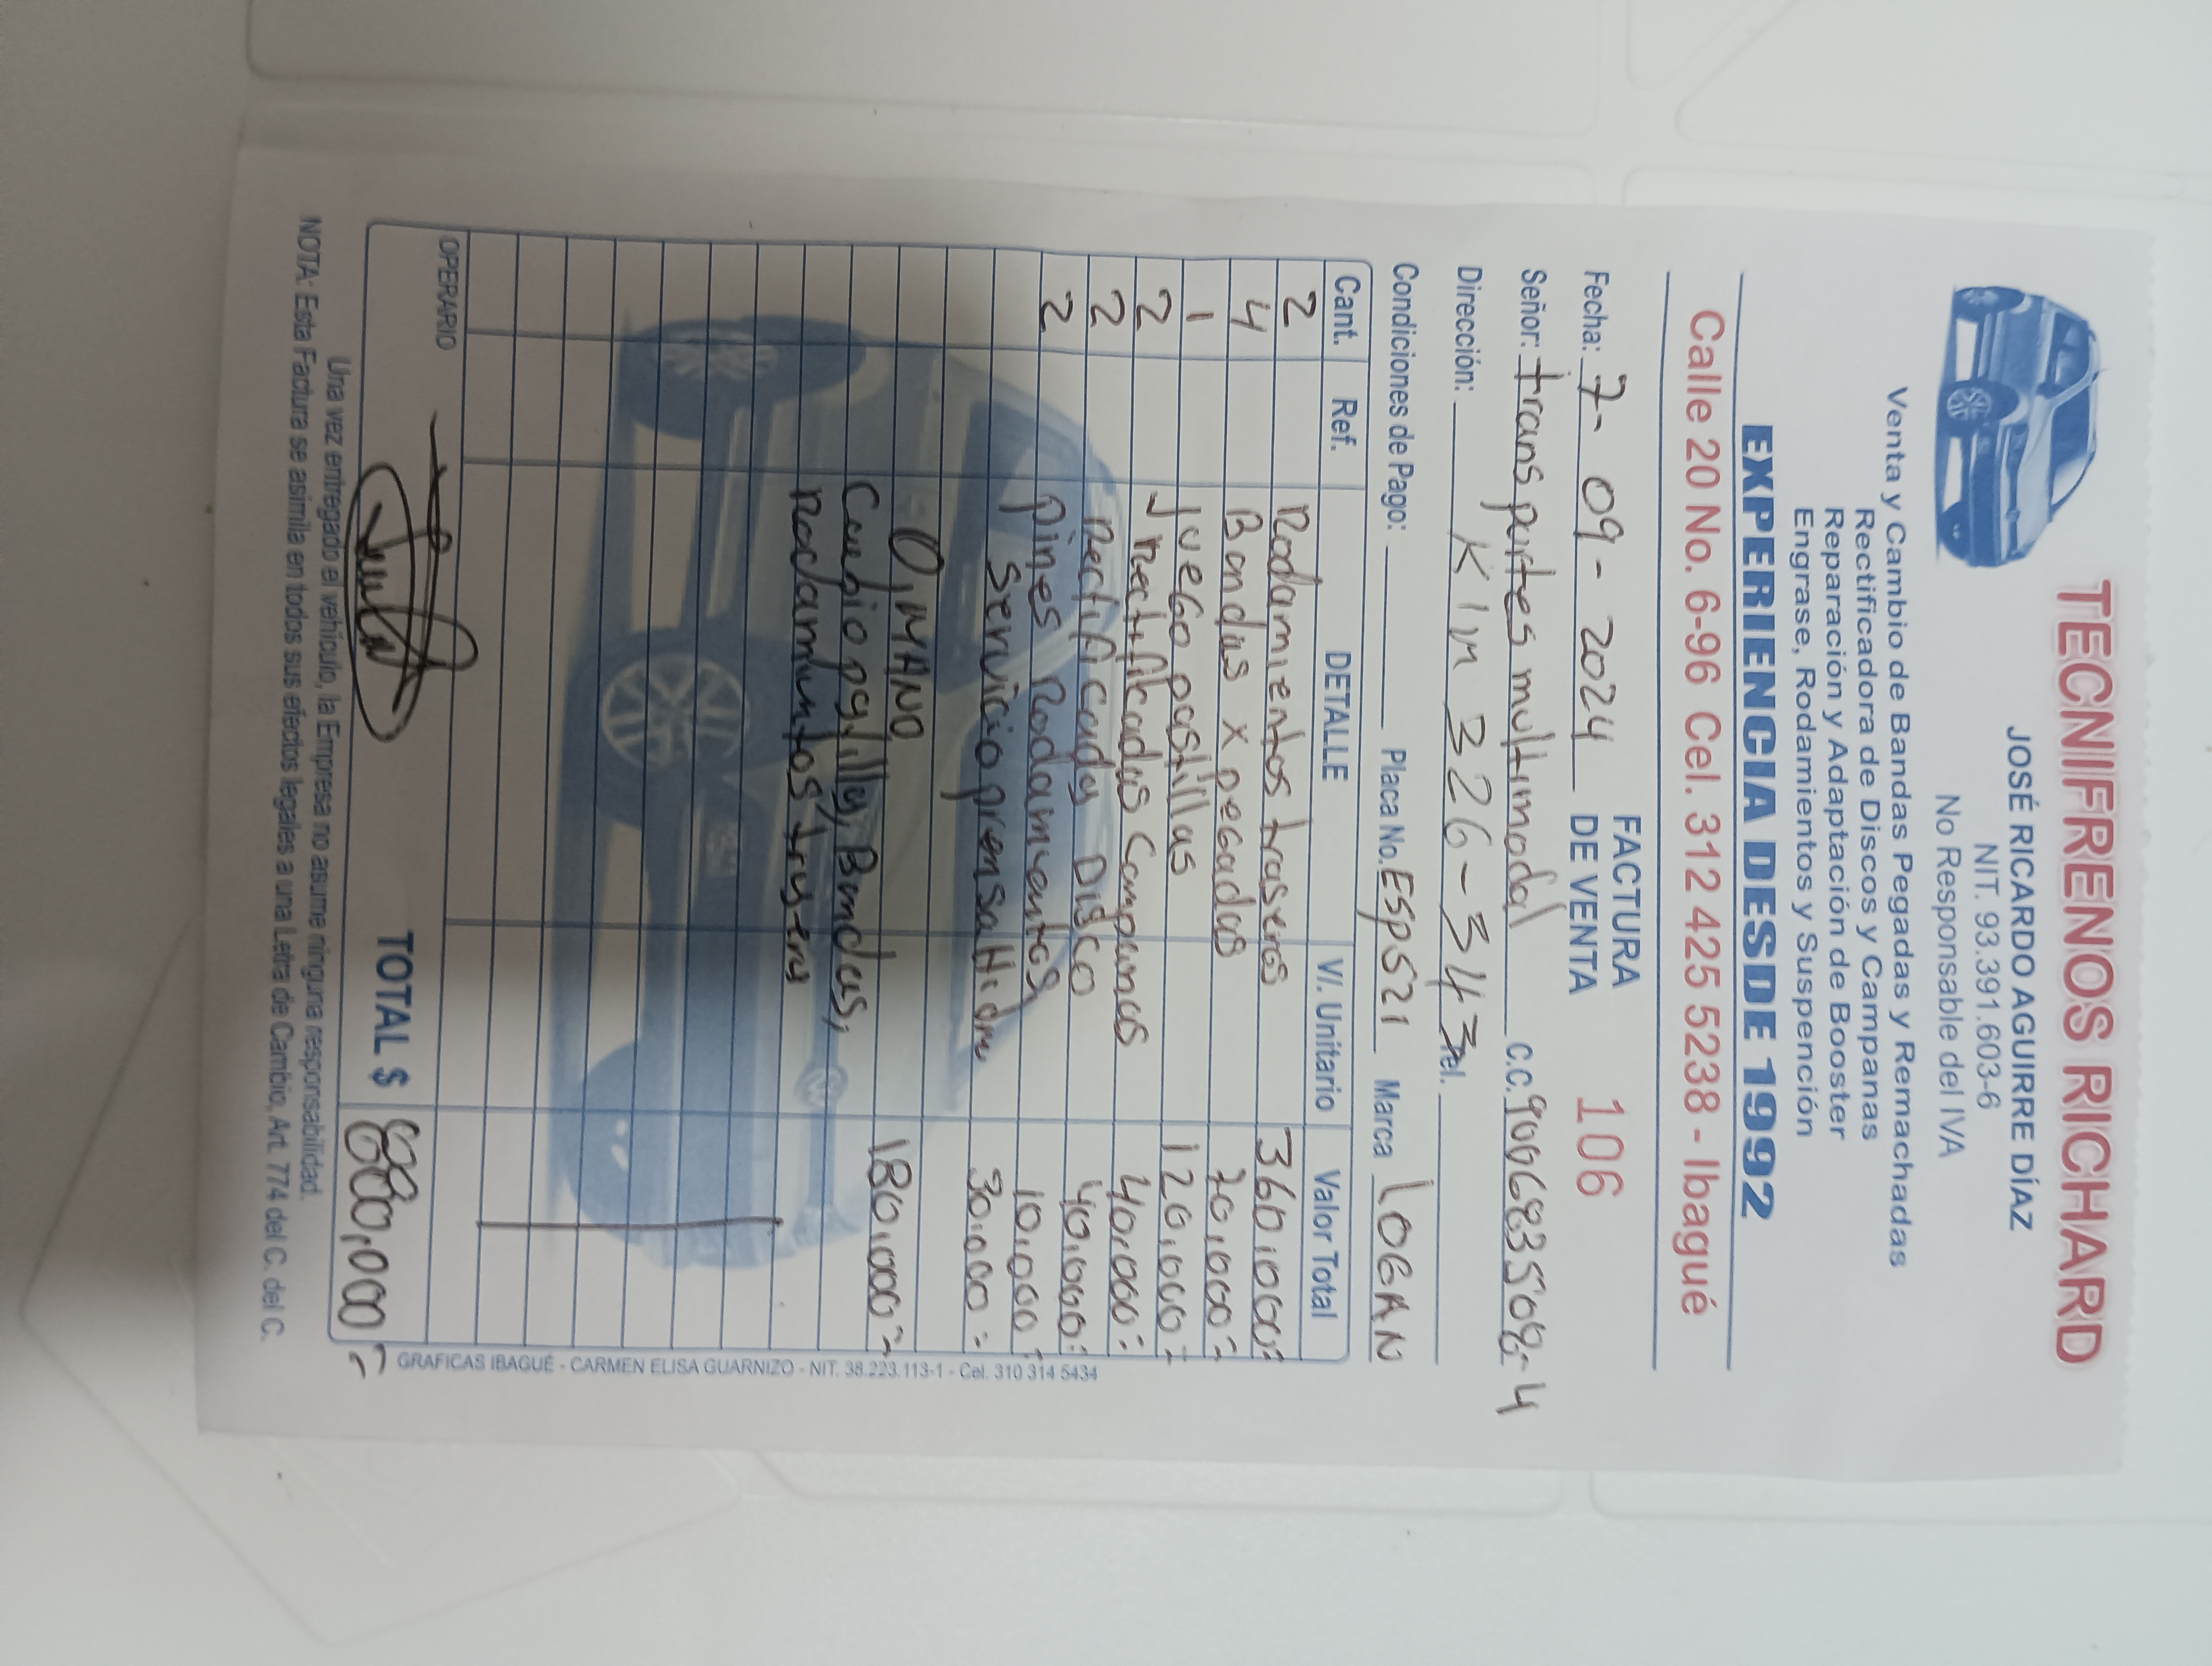 TECNIFRENOS RICHARD
JOSÉ RICARDO AGUIRRE DÍAZ
NIT. 93.391.603-6
No Responsable del IVA
Venta y Cambio de Bandas Pegadas y Remachadas
Rectificadora de Discos y Campanas
Reparación y Adaptación de Booster
Engrase, Rodamientos y Suspención
EXPERIENCIA DESDE 1992
Calle 20 No. 6-96 Cel. 312 425 5238 - Ibagué
FACTURA DE VENTA 106
Fecha: 7-09-2024
Señor: transportes multimodal C.C. 900683508-4
Dirección: K 1 M 326-343 Tel.
Condiciones de Pago: Placa No. ESP521 Marca LOGAN
Cant. Ref. DETALLE V/. Unitario Valor Total
2 Rodamientos traseros 360.000=
4 Bandas x pegadas 70.000=
1 Juego pastillas 120.000=
2 rectificadas Campanas 40.000=
2 Rectificada Disco 40.000=
2 pines Rodamientos 10.000=
Servicio prensa Hidra 30.000=
O, MANO
Cambio pastillas, Bandas, 180.000=
rodamientos traseros
OPERARIO
TOTAL $ 880,000
Una vez entregado el vehículo, la Empresa no asume ninguna responsabilidad.
NOTA: Esta Factura se asimila en todos sus efectos legales a una Letra de Cambio, Art. 774 del C. del C.
GRAFICAS IBAGUÉ - CARMEN ELISA GUARNIZO - NIT. 38.223.113-1 - Cel. 310 314 5434